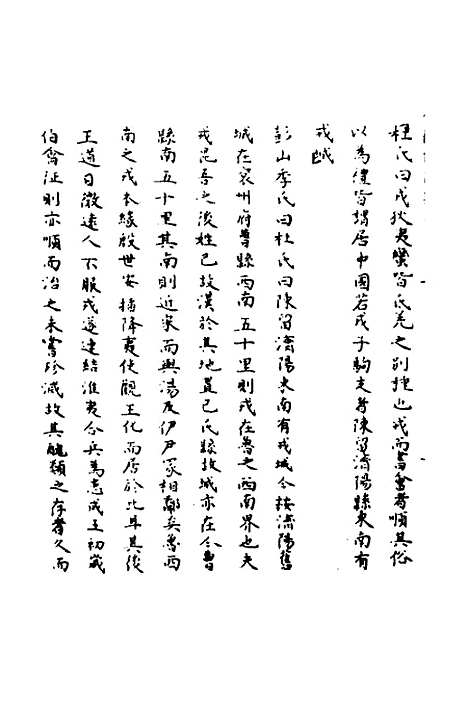 杜氏曰戎狄夷蠻皆氐羌之别種也戎而書會者順其俗
以為禮皆謂居中國若戎子駒支者陳留濟陽縣東南有
戎城
彭山季氏曰杜氏曰陳留濟陽東南有戎城今按濟陽舊
城在兖州府曹縣西南五十里則戎在魯之西南界也夫
戎昆吾之後姓己故漢於其地置己氏縣故城亦在今曹
縣南五十里其南則近宋而與湯及伊尹冢相鄰矣魯西
南之戎本緣殷世安插降夷使觀王化而居於此耳其後
王道日微遠人不服戎遂連結淮夷合兵為患成王初歲
伯禽征則亦順而治之未嘗殄滅故其醜類之存者久而